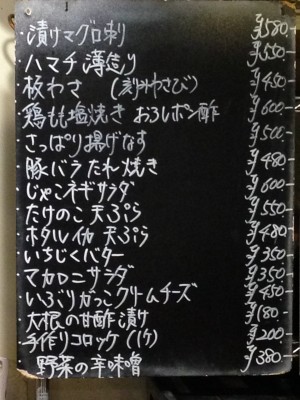 漬けマグロ刺 ¥580-
ハマチ薄造り ¥550-
板わさ (刻みわさび) ¥450
鶏もも塩焼き おろしポン酢 ¥600-
さっぱり揚げなす ¥500-
豚バラたれ焼き ¥480-
じゃこネギサラダ ¥600-
たけのこ天ぷら ¥550-
ホタルイカ天ぷら ¥480-
いちじくバター ¥350-
マカロニサラダ ¥350-
いぶりがっこクリームチーズ ¥450-
大根の甘酢漬け ¥180-
手作りコロッケ(1ケ) ¥200-
野菜の辛味噌 ¥380-